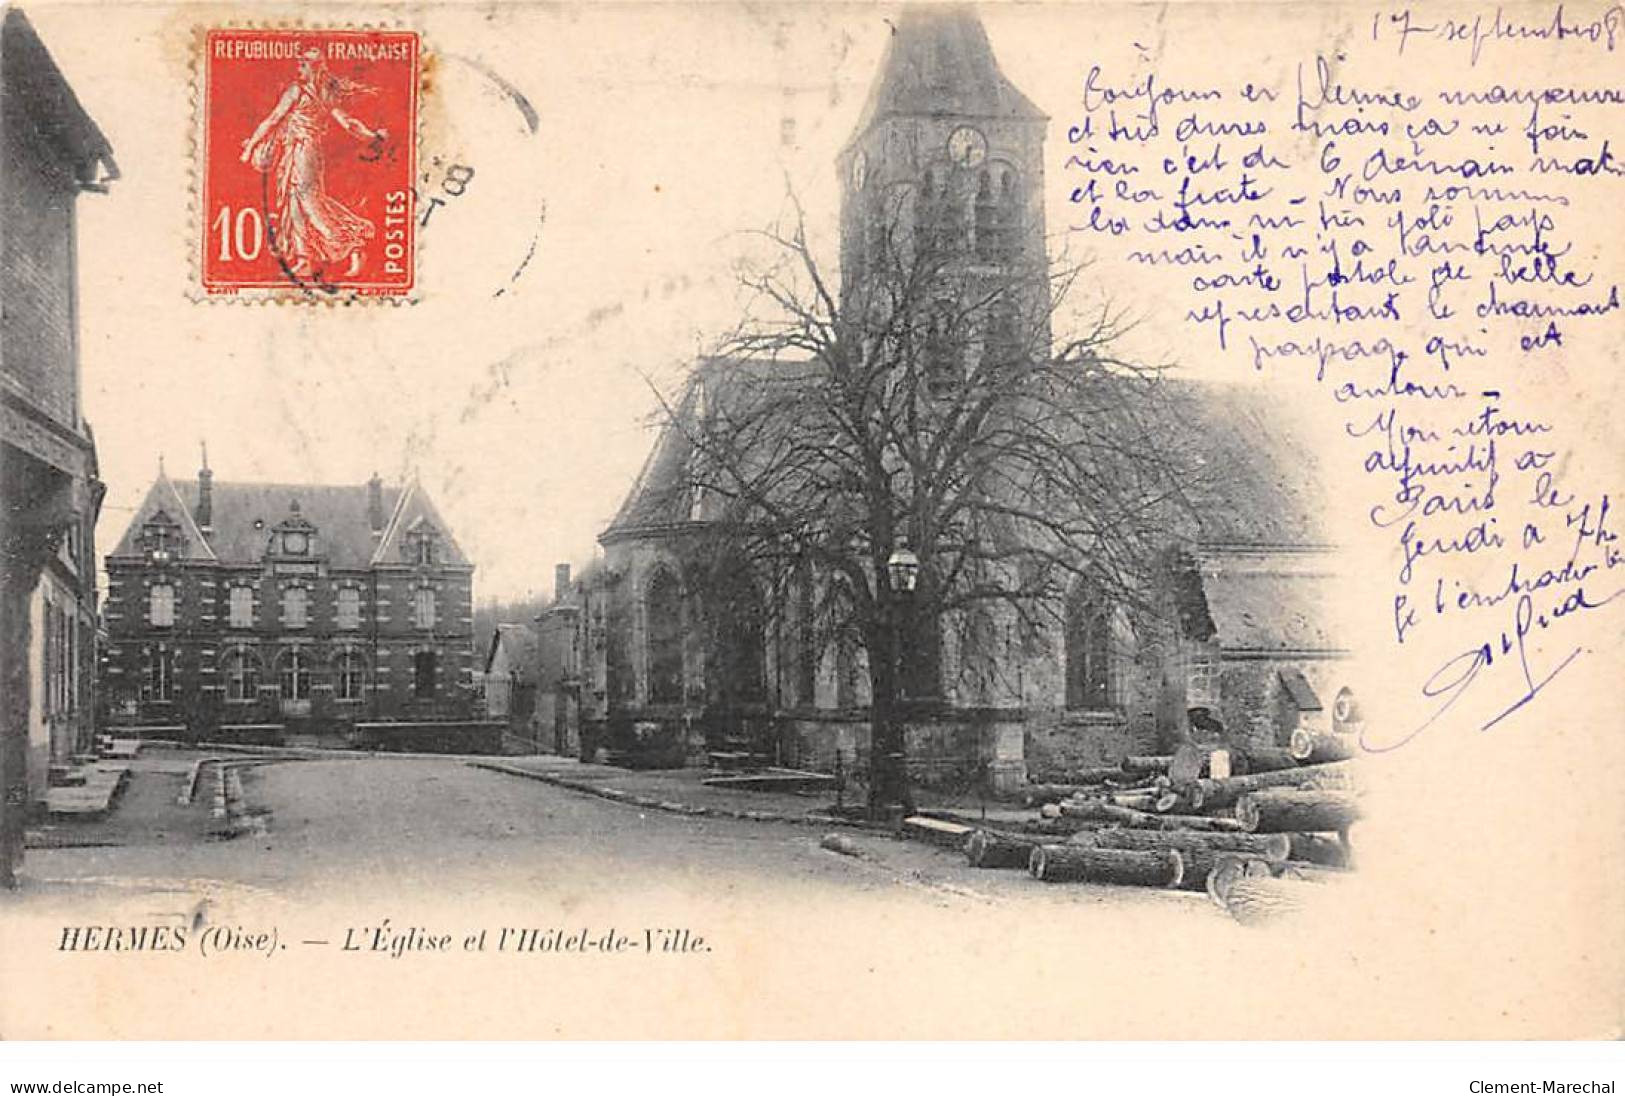 17 septembre 08
RÉPUBLIQUE FRANÇAISE
10c POSTES
Toujours en pleines manœuvre
et très dures mais ça ne fais
rien c'est de 6 demain matin
et la fuite - Nous sommes
la dans un très joli pays
mais il n'y a aucune
carte postale de belle
représentant le charmant
paysage qui est
autour -
Mon retour
définitif a
Paris le
Jeudi a 7h
Je t'embrasse
Alfred
HERMES (Oise). — L'Église et l'Hôtel-de-Ville.
www.delcampe.net
Clement-Marechal